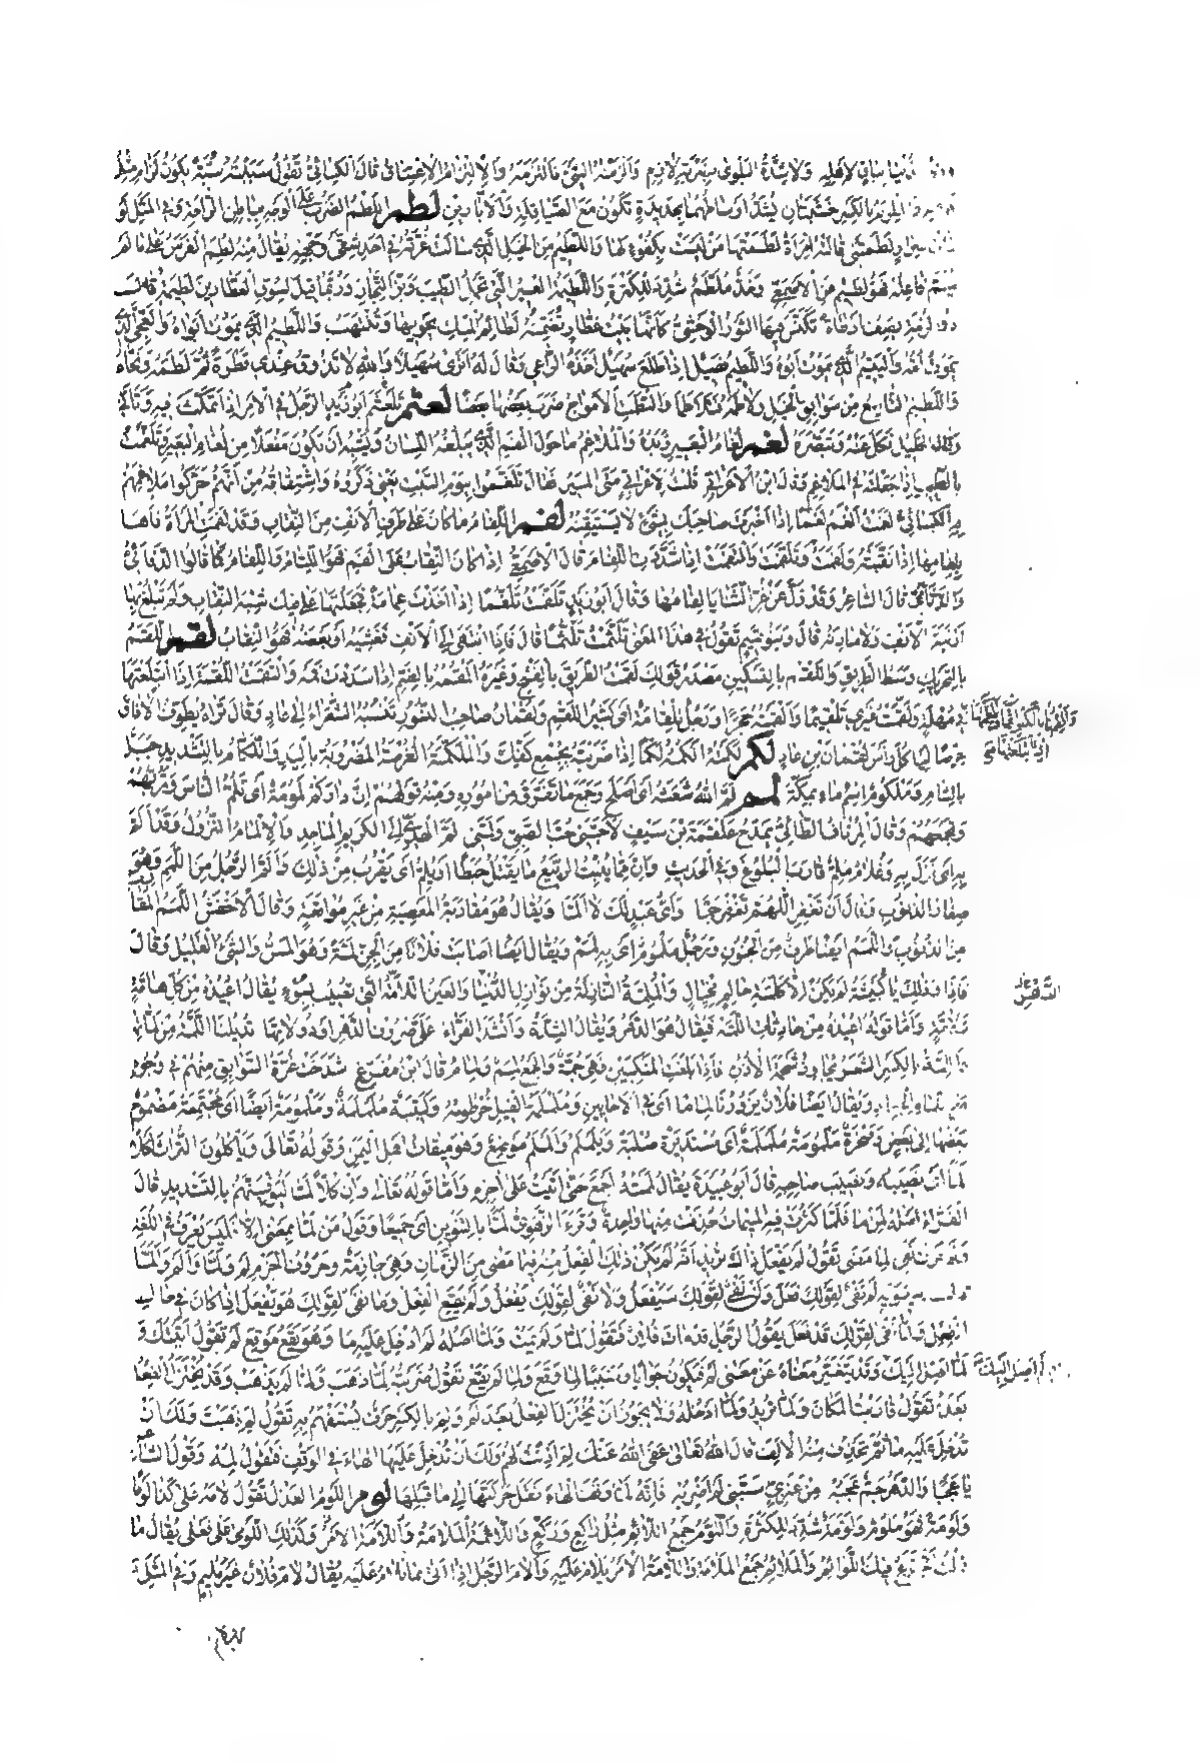 الدنيا بباق لاهله ولا شدة البلوى بضربة لازم والزمته الشئ فالتزمه والالتزام الاعتناق قال الكسائي تقول سببته سبة يكون لزام مثل
والملزم بالكسر خشبتان يشد اوساطهما بحديدة تكون مع الصياقلة والابارين لطم اللطم الضرب على الوجه بباطن الراحة وفي المثل لو
ذات سوار لطمتني قالته امراة لطمتها من ليست بكفوء لها واللطيم من الخيل الذي سالت غرته في احد شقي وجهه يقال منه لطم الفرس على ما لم
يسم فاعله فهو لطيم عن الاصمعي وخد ملطم شدد للكثرة واللطيمة العير التي تحمل الطيب وبز التجار وربما قيل لسوق العطارين لطيمة قال
ذو الرمة يصف ارطاة تكنس فيها الثور الوحشي كانها بيت عطار يضمنه لطائم المسك يحويها وتنتهب واللطيم الذي يموت ابواه والعجي الذي
تموت امه واليتيم الذي يموت ابوه واللطيم فصيل اذا طلع سهيل اخذه الراعي وقال له اترى سهيلا والله لا تذوق عندي قطرة ثم لطمه ونحاه
واللطيم التاسع من سوابق الخيل ولاطمه فتلاطما والتطمت الامواج ضرب بعضها بعضا لعثم تلعثم ابو زيد الرجل في الامر اذا تمكث فيه وتأنى
وقال الخليل نكل عنه وتبصره لغم لغام البعير زبده والملاغم ما حول الفم الذي يبلغه اللسان ويشبه ان يكون مفعلا من لغام البعير وتلغمت
بالطيب اذا جعلته في الملاغم وقال ابن الاعرابي قلت لاعرابي متى المسير فقال تلغموا بيوم السبت يعني ذكروه واشتقاقه من انهم حركوا ملاغمهم
به الكسائي لغمت الغم لغما اذا اخبرت صاحبك بشئ لا يستيقنه لفم اللفام ما كان على طرف الانف من النقاب وقد لفمت المراة فاها
بلفامها اذا نقبته ولفمت وتلفمت والتفمت اذا شدت اللفام قال الاصمعي اذا كان النقاب على الفم فهو اللثام واللفام كما قالوا الدفائي
والدثائي قال الشاعر وقد ولى عن غر الثنايا لفامها وقال ابو زيد تلفمت تلفما اذا اخذت عمامة فجعلتها على فيك شبه النقاب ولم تبلغ بها
ارنبة الانف ولا مارنه قال وبنو تميم تقول في هذا المعنى تلثمت تلثما قال فاذا انتهى الى الانف فغشيه او بعضه فهو النقاب لقم اللقم
بالتحريك وسط الطريق واللقم بالتسكين مصدر قولك لقمت الطريق بالفتح وغيره القمه بالضم اذا سددت فمه والتقمت اللقمة اذا ابتلعتها
في مهلة ولقمت غيري تلقيما والقمته حجرا ورجل تلقامة اي كبير اللقم ولقمان صاحب النسور تنسبه الشعراء الى عاد وقال تراه يطوف الافاق
حرصا لياكل راس لقمان بن عاد لكم لكمته الكمه لكما اذا ضربته بجمع كفك والملكمة القرصة المضروبة باليد واللكام بالتشديد جبل
بالشام وملكوم اسم ماء بمكة لمم لم الله شعثه اي اصلح وجمع ما تفرق من اموره ومنه قولهم ان داركم لمومة اي تلم الناس وتربهم
وتجمعهم وقال المرناف الطائي يمدح علقمة بن سيف لاحبني حب الصبي ولمني لم الهدي الى الكريم الماجد والالمام النزول وقد الم
به اي نزل به وغلام ملم قارب البلوغ وفي الحديث وان مما ينبت الربيع ما يقتل حبطا او يلم اي يقرب من ذلك والم الرجل من اللمم وهو
صغار الذنوب وقال ان تغفر اللهم تغفر جما واي عبد لك لا الما ويقال هو مقاربة المعصية من غير مواقعة وقال الاخفش اللمم المقارب
من الذنوب واللمم ايضا طرف من الجنون ورجل ملموم اي به لمم ويقال ايضا اصابت فلانا من الجن لمة وهو المس والشئ القليل وقال
فاذا وذلك يا كبيشة لم يكن الا كلمة حالم بخيال والملمة النازلة من نوازل الدنيا والعين اللامة التي تصيب بسوء يقال اعيذه من كل هامة
ولامة واما قوله اعيذه من حادثات اللمة فيقال هو الدهر ويقال الشدة وانشد الفراء على صروف الدهر او دولاتها تديلنا اللمة من لماتها
واللمة بالكسر الشعر يجاوز شحمة الاذن فاذا بلغت المنكبين فهي جمة والجمع لمم ولمام قال ابن مفرغ شدخت غرة السوابق منهم في وجوه
مع اللمام الجعاد ويقال ايضا فلان يزورنا لماما اي في الاحايين وململة الفيل خرطومه وكتيبة ململمة وملمومة ايضا اي مجتمعة مضموم
بعضها الى بعض وصخرة ملمومة وململمة اي مستديرة صلبة ويلملم والملم موضع وهو ميقات اهل اليمن وقوله تعالى وياكلون التراث اكلا
لما اي نصيبه ونصيب صاحبه قال ابو عبيدة يقال لممته اجمع حتى اتيت على اخره واما قوله تعالى وان كلا لما ليوفينهم بالتشديد قال
الفراء اصله لمن ما فلما كثرت فيه الميمات حذفت منها واحدة وقرء الزهري لما بالتنوين اي جميعا وقول من لما بمعنى الا فليس يعرف في اللغة
ولم حرف نفي لما مضى تقول لم يفعل ذاك تريد انه لم يكن ذلك الفعل منه فيما مضى من الزمان وهي جازمة وحروف الجزم لم ولما والم والما
قال سيبويه لم نفي لقولك فعل ولن نفي لقولك سيفعل ولا نفي لقولك يفعل ولم يقع الفعل وما نفي لقولك هو يفعل اذا كان في حال
الفعل ولما نفي لقولك قد فعل يقول الرجل قد مات فلان فتقول لما ولم يمت ولما اصله لم ادخل عليه ما وهو يقع موقع لم تقول اتيتك و
لما اصل اليك وقد يتغير معناه عن معنى لم فيكون جوابا وسببا لما وقع ولما لم يقع تقول ضربته لما ذهب ولما لم يذهب وقد يختزل الفعل
بعده تقول قاربت المكان ولما تريد ولما ادخله ولا يجوز ان تختزل الفعل بعد لم ولم بالكسر حرف يستفهم به تقول لم ذهبت ولك ان
تدخل عليه ما ثم تحذف منه الالف قال الله تعالى عفى الله عنك لم اذنت لهم ولك ان تدخل عليها الهاء في الوقف فتقول لمه وقول الشاعر
يا عجبا والدهر جم عجبه من عنزي سبني لم اضربه فانه لما وقف الهاء نقل حركتها الى ما قبلها لوم اللوم العذل تقول لامه على كذا لوما
ولومة فهو ملوم ولومه شدد للكثرة واللوم جمع اللائم مثل راكع وركع واللائمة الملامة واللامة الامر وكذلك اللومى على فعلى يقال ما
زلت اتجرع فيك اللوائم والملائم جمع الملامة واللامة الامر يلام عليه والام الرجل اذا اتى بما يلام عليه يقال لام فلان غير مليم وفي المثل